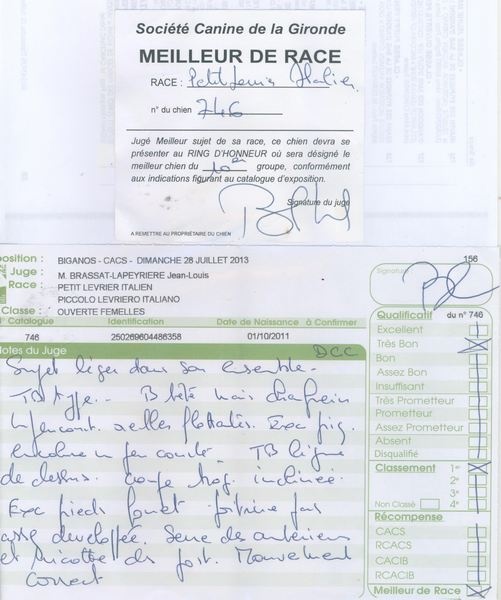 Société Canine de la Gironde
MEILLEUR DE RACE
RACE : Petit Levrier Italien
n° du chien 746
Jugé Meilleur sujet de sa race, ce chien devra se
présenter au RING D'HONNEUR où sera désigné le
meilleur chien du 10e groupe, conformément
aux indications figurant au catalogue d'exposition.
Signature du juge
A REMETTRE AU PROPRIETAIRE DU CHIEN
osition : BIGANOS - CACS - DIMANCHE 28 JUILLET 2013
156
Juge : M. BRASSAT-LAPEYRIERE Jean-Louis
Signature
Race : PETIT LEVRIER ITALIEN
PICCOLO LEVRIERO ITALIANO
Classe : OUVERTE FEMELLES
N° Catalogue Identification Date de Naissance à Confirmer
746 250269604486358 01/10/2011
Notes du Juge
DCC
Sujet léger dans son ensemble -
TB type - B tête mais chanfrein
un peu court. oreilles flottantes. Exc pig.
encolure un peu courte - TB ligne
de dessus. croupe trop inclinée
Exc pieds fouet - poitrine pas
assez développée. Serré des antérieurs
et tricotte du post. Mouvement
correct
Qualificatif du n° 746
Excellent
Très Bon
Bon
Assez Bon
Insuffisant
Très Prometteur
Prometteur
Assez Prometteur
Absent
Disqualifié
Classement 1er
2e
3e
Non Classé 4e
Récompense
CACS
RCACS
CACIB
RCACIB
Meilleur de Race